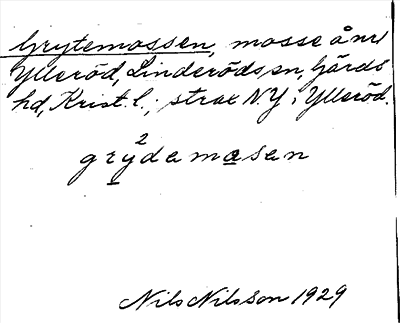 Grytemossen, mosse å nr 1
Ylleröd, Linderöds sn, Gärds
hd, Krist. l.; strax N.Y. i Ylleröd.
2
grydemasen
Nils Nilsson 1929